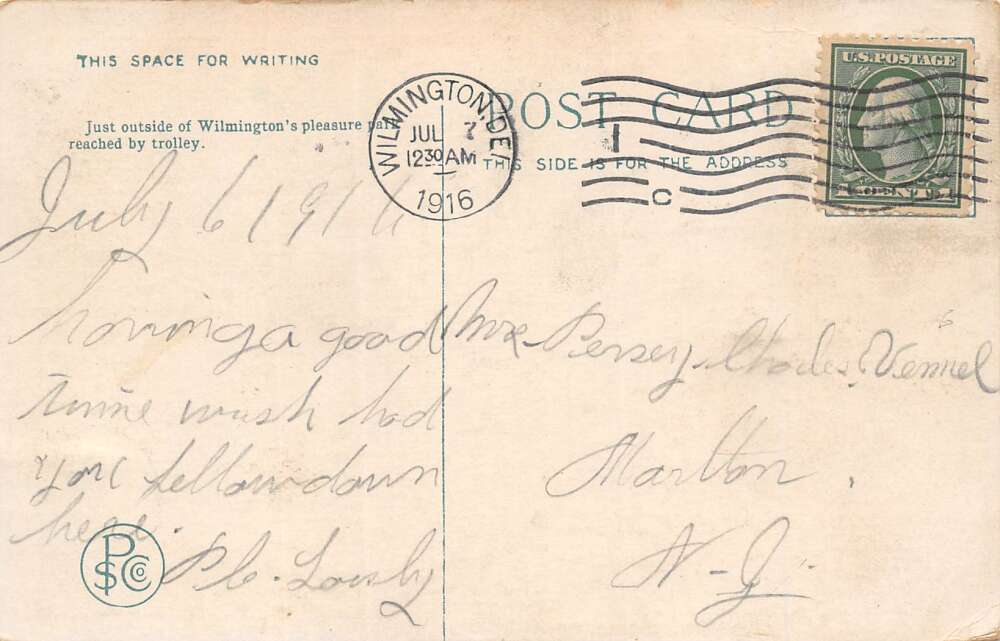 THIS SPACE FOR WRITING
Just outside of Wilmington's pleasure park
reached by trolley.
POST CARD
THIS SIDE IS FOR THE ADDRESS
WILMINGTON, DEL.
JUL 7
1230 AM
1916
1
C
U.S. POSTAGE
1 CENT 1
July 6 1916
having a good
time wish had
you fellow down
here.
Mr Persey Charles Vennel
Marlton.
N-J-
PSCCo